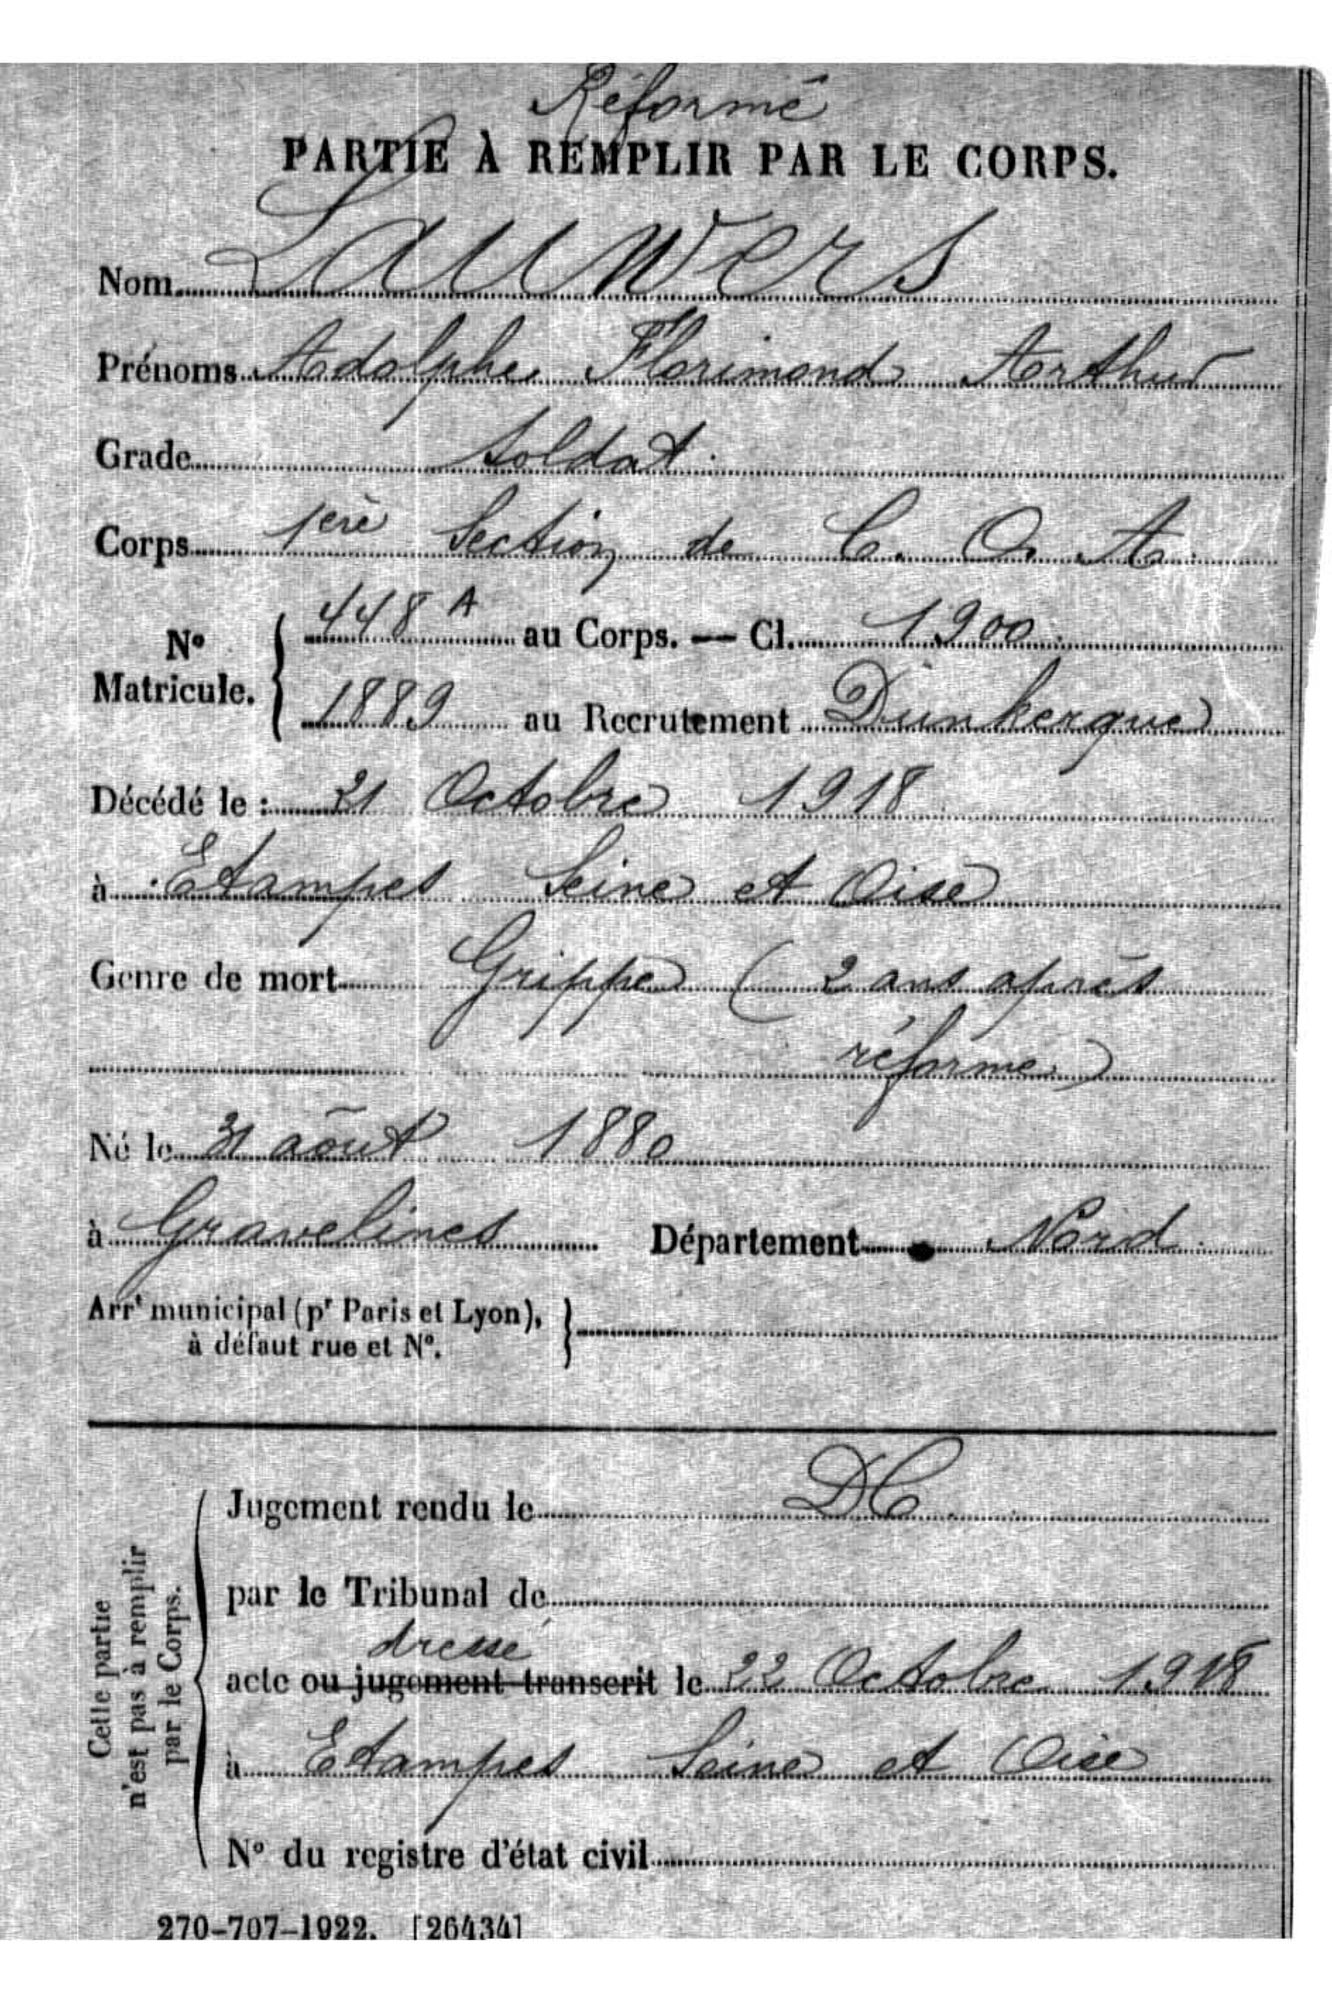 Réformé
PARTIE À REMPLIR PAR LE CORPS.
Nom Lauwers
Prénoms Adolphe Florimond Arthur
Grade Soldat.
Corps 1ère Section de C. O. A.
N° Matricule. { 448 A au Corps. — Cl. 1900.
1889 au Recrutement Dunkerque
Décédé le : 21 Octobre 1918
à Etampes Seine et Oise
Genre de mort Grippe (2 ans après
réforme)
Né le 31 août 1880
à Gravelines Département Nord
Arrt municipal (pr Paris et Lyon), }
à défaut rue et N°.
Cette partie
n'est pas à remplir
par le Corps.
Jugement rendu le DC.
par le Tribunal de
dressé
acte ou jugement transcrit le 22 Octobre 1918
à Etampes Seine et Oise
N° du registre d'état civil
270-707-1922. [26434]